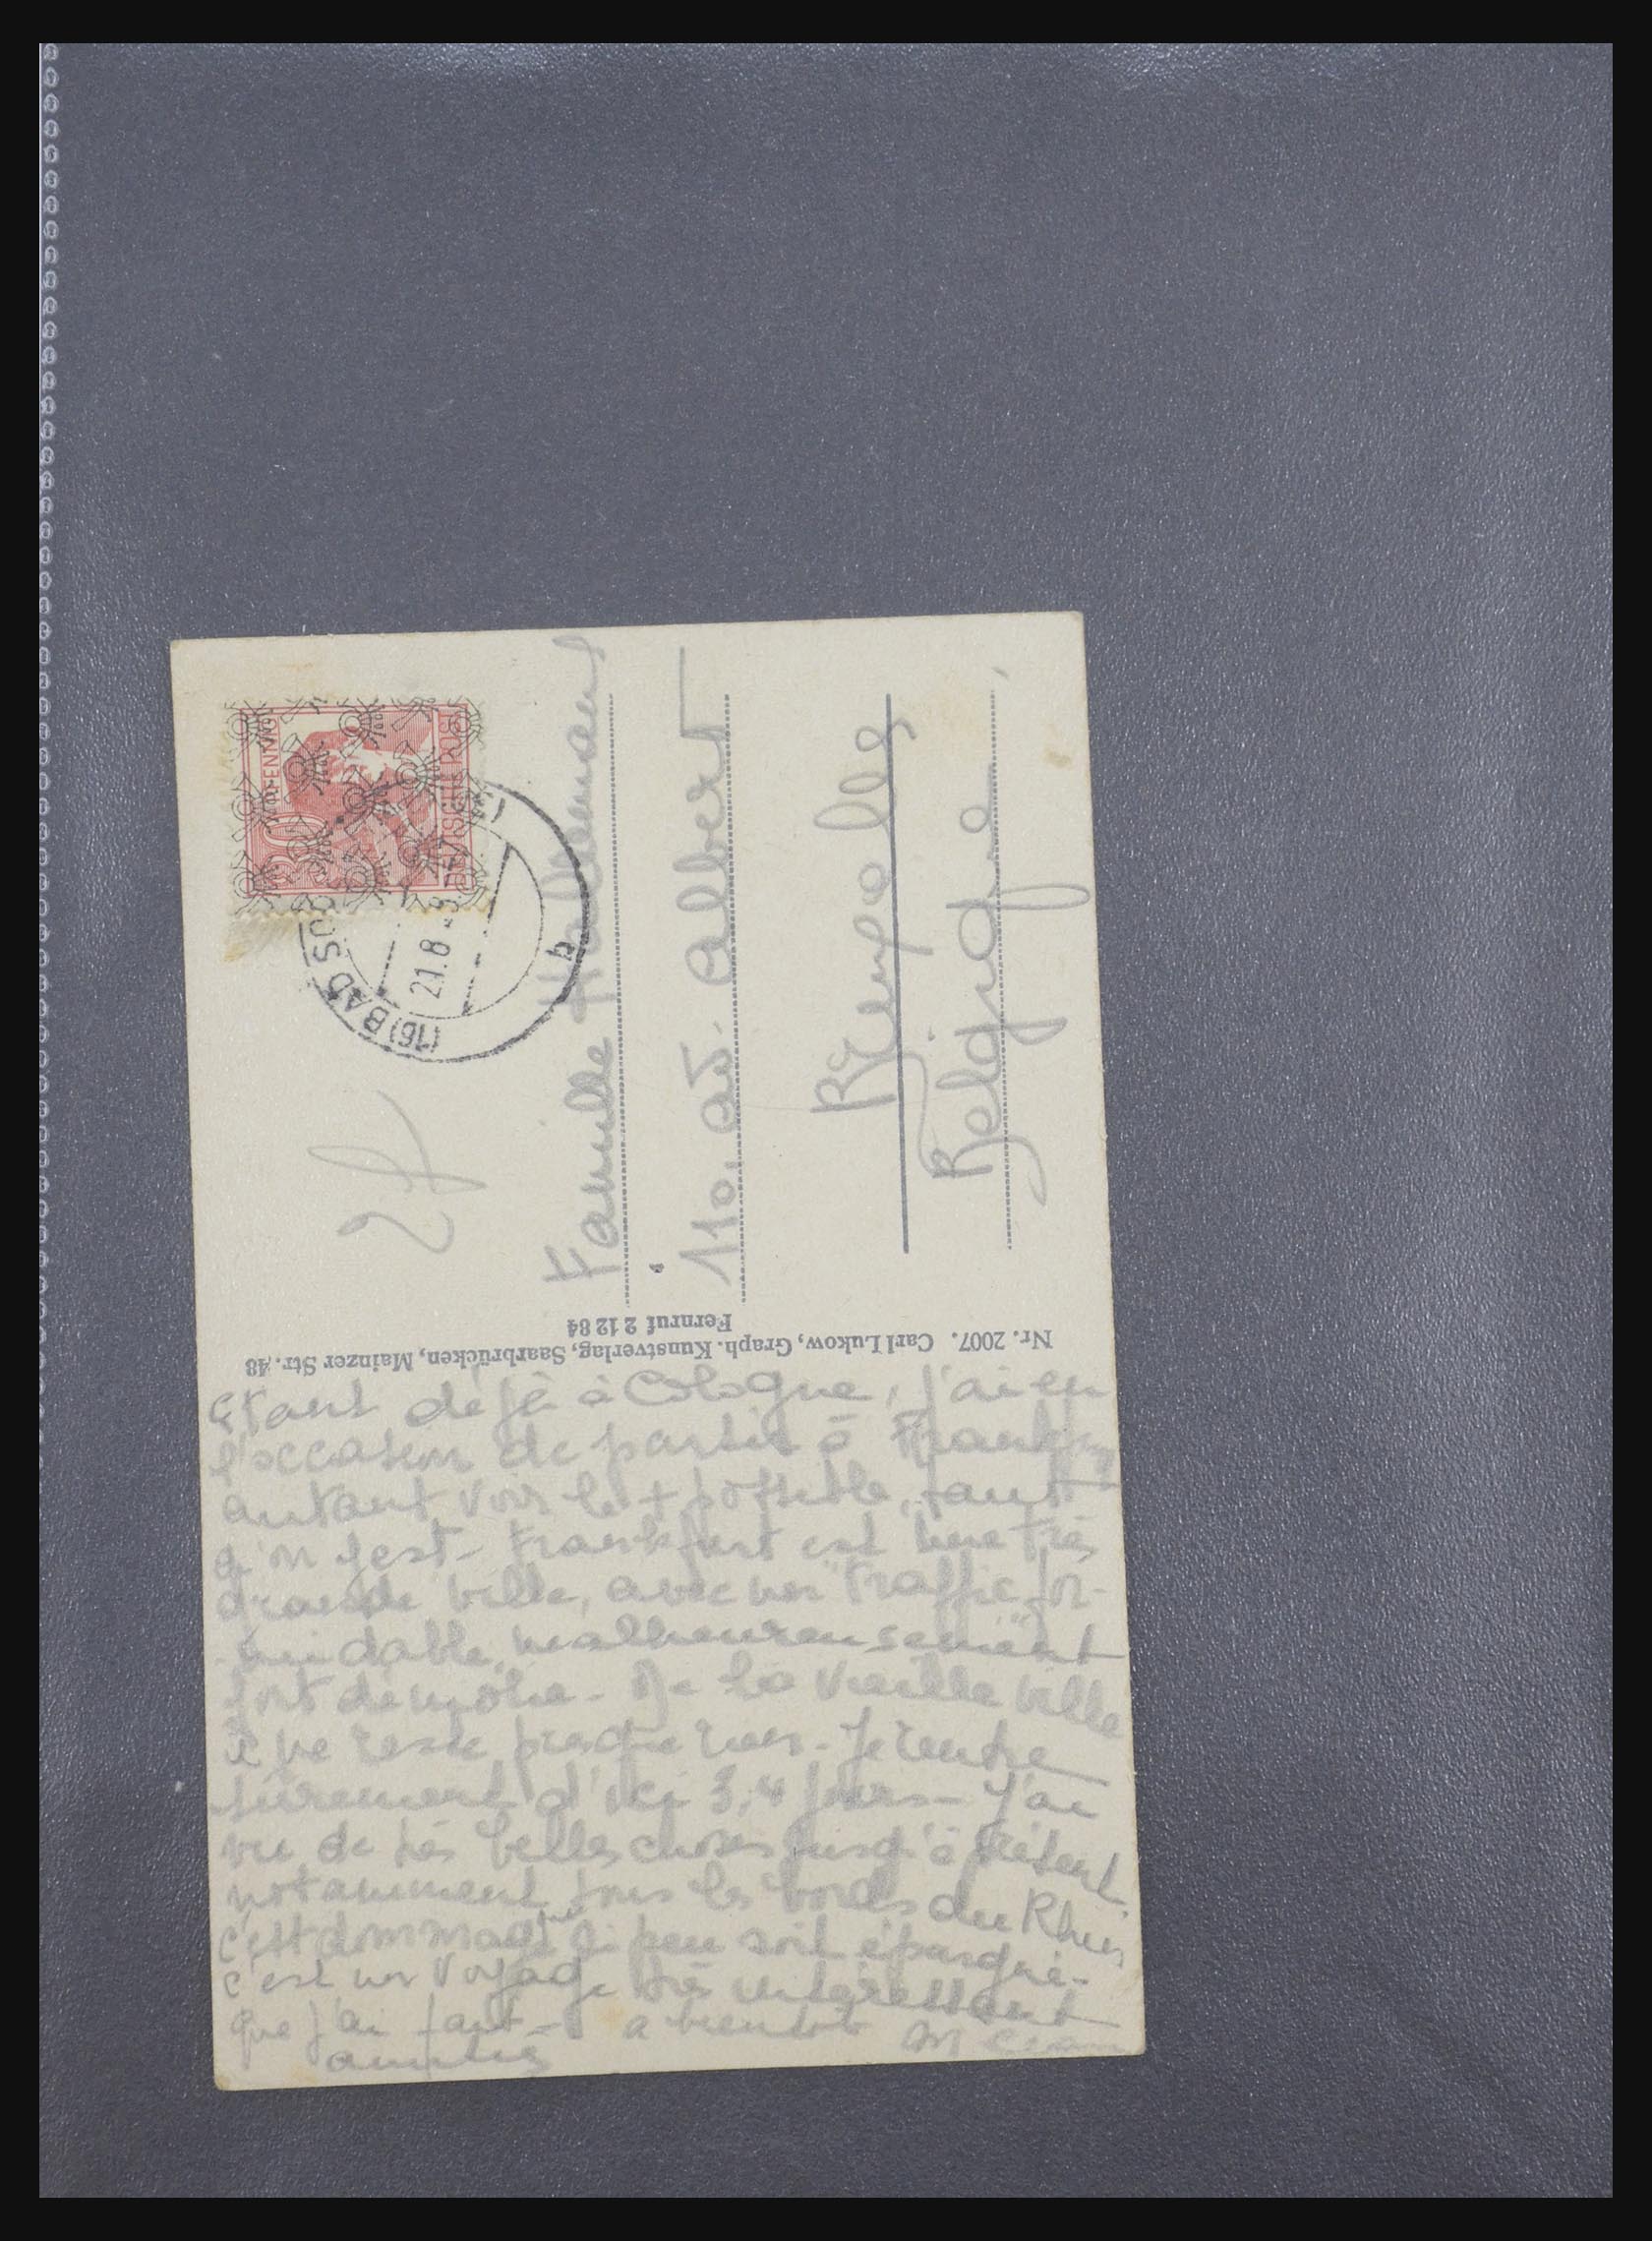 PFENNIG
30
DEUTSCHE POST
(16) BAD SOD
21.8
b
Famille Hallemans
110, av. Albert
Bruxelles
Belgique
Nr. 2007. Carl Lukow, Graph. Kunstverlag, Saarbrücken, Mainzer Str. 48
Fernruf 2 12 84
Etant déjà à Cologne, j'ai eu
l'occasion de partir à
autant voir le + possible, tant
q'on y est - Frankfurt est une très
grande ville, avec un traffic for-
midable, malheureusement
fort démolie - De la vieille ville
il ne reste presque rien - Je rentre
sûrement d'ici 3, 4 jours - J'ai
vu de très belles choses jusq'à présent,
notamment tous les bords du Rhin,
c'est dommage que si peu soit épargné -
c'est un voyage très intéressant
que j'ai fait - a bientôt
amitiés